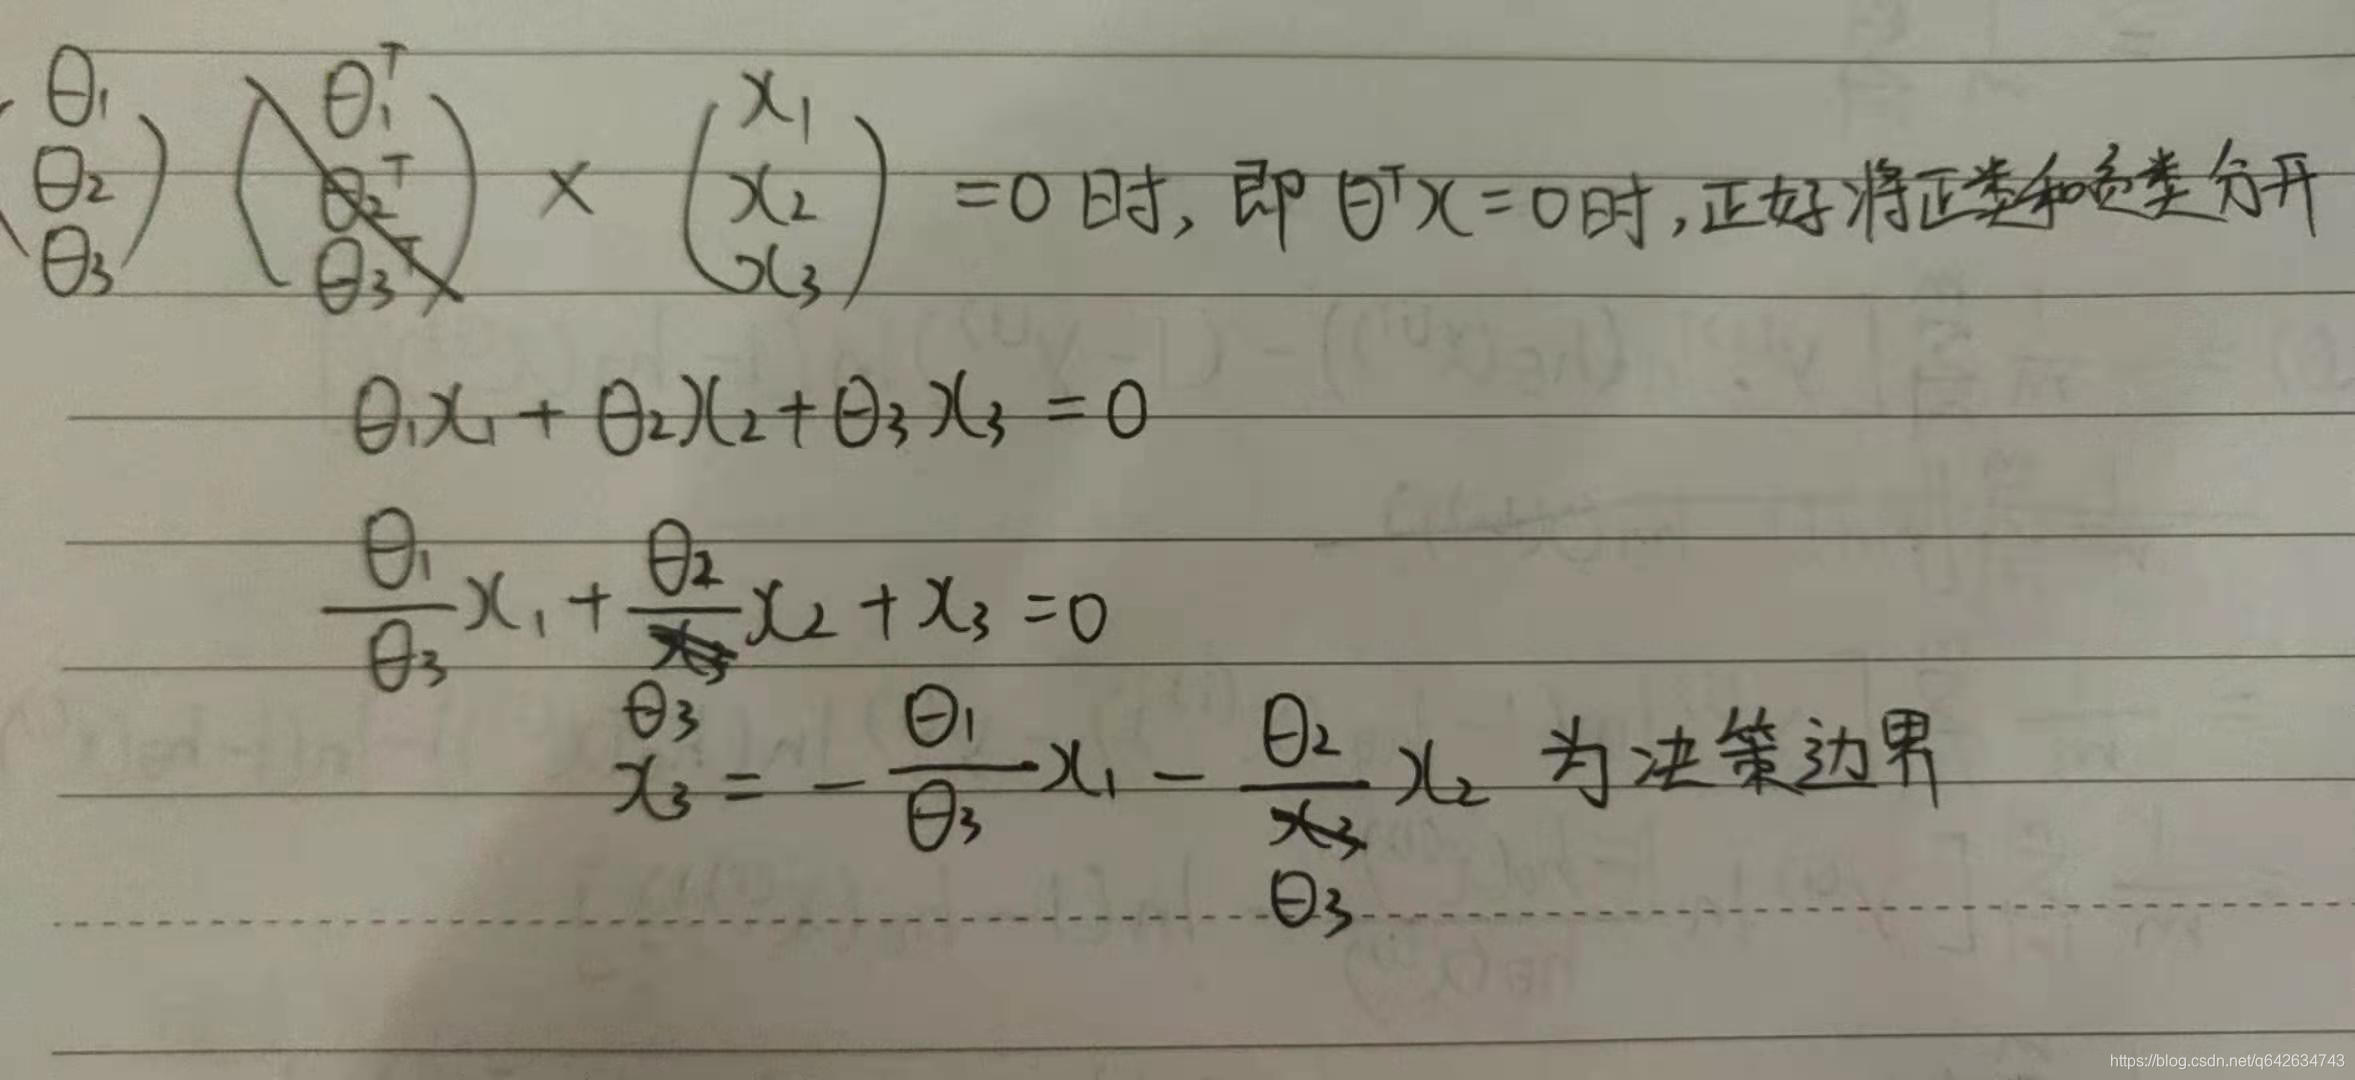 (θ₁ θ₂ θ₃) (θ₁ᵀ θ₂ᵀ θ₃ᵀ) × (x₁ x₂ x₃) =0时, 即 θᵀx=0时,正好将正类和负类分开
θ₁x₁ + θ₂x₂ + θ₃x₃ = 0
θ₁/θ₃ x₁ + θ₂/θ₃ x₂ + x₃ = 0
x₃ = - θ₁/θ₃ x₁ - θ₂/θ₃ x₂ 为决策边界
https://blog.csdn.net/q642634743